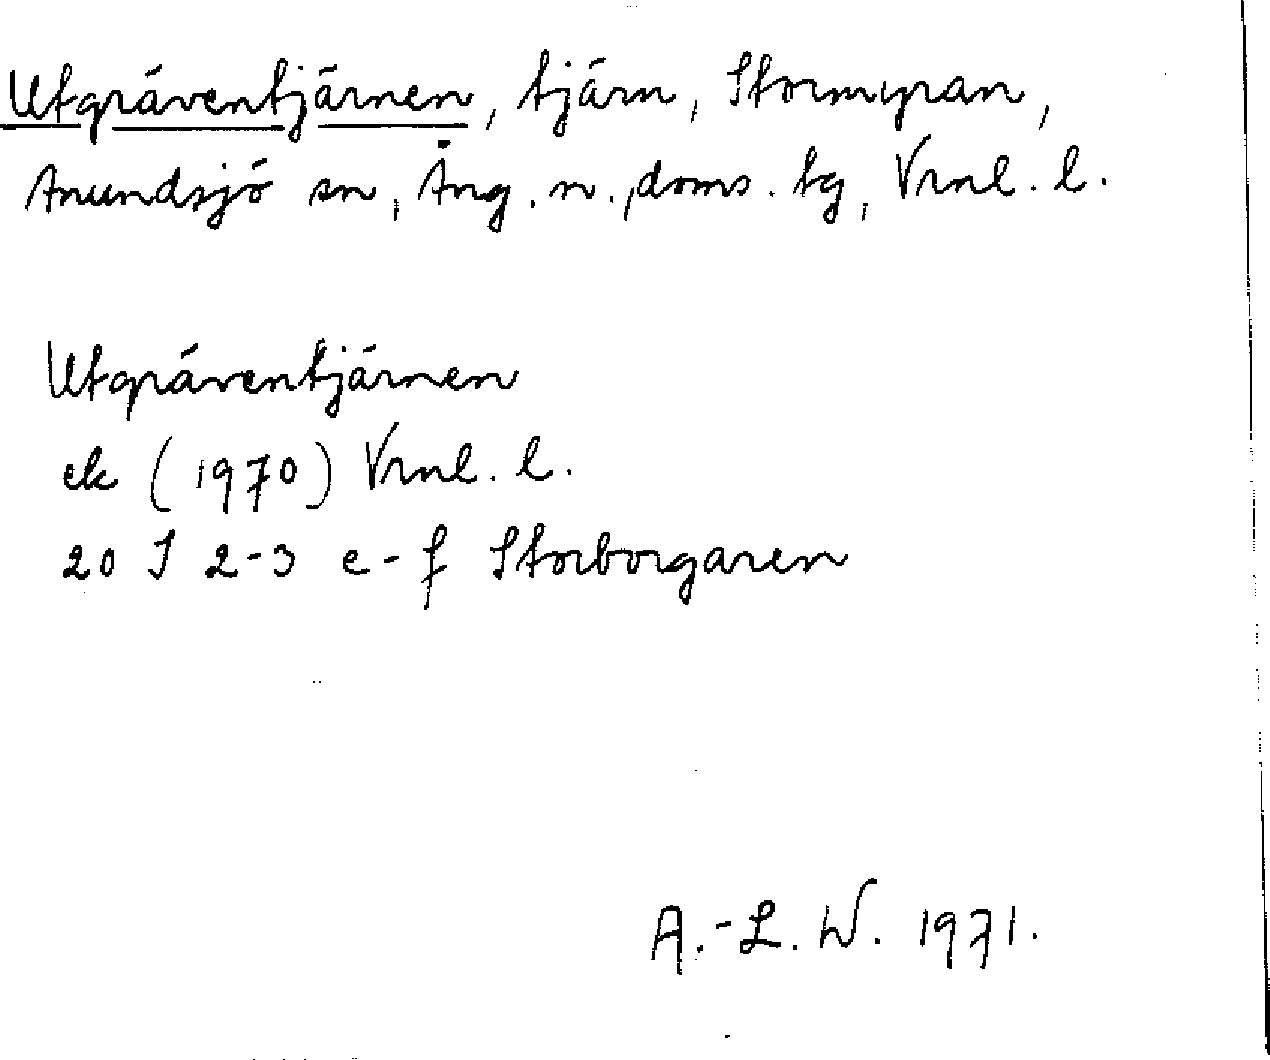 Utgräventjärnen, tjärn, Stormyran,
Anundsjö sn, Ång. n. doms. tg, Vrnl. l.
Utgräventjärnen
ek (1970) Vrnl. l.
20 I 2-3 e-f Storborgaren
A.-L. W. 1971.